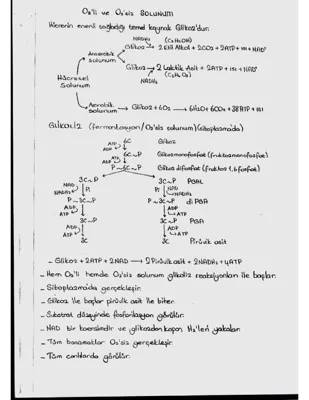 O₂'li ve O₂'siz SOLUNUM
Hücrenin enerji sağladığı temel kaynak Glikoz'dur.
NADH₂ (C₂H₅OH)
Anaerobik Solunum
Glikoz → 2 Etil Alkol + 2CO₂ + 2ATP + ısı + NAD⁺
NADH₂
Glikoz → 2 Laktik Asit + 2ATP + ısı + NAD⁺
(C₃H₆O₃)
Hücresel Solunum
Aerobik Solunum
Glikoz + 6O₂ → 6H₂O + 6CO₂ + 38ATP + ısı
GLİKOLİZ (fermantasyon / O₂'siz solunum) (Sitoplazmada)
6C Glikoz
ATP ADP
6C~P Glikozmonofosfat (fruktozmonofosfat)
ATP ADP
P~6C~P Glikoz difosfat (fruktoz 1,6 fosfat)
3C~P 3C~P PGAL
NAD NADH₂ Pi Pi NAD NADH₂
P~3C~P P~3C~P di PGA
ADP ATP ADP ATP
3C~P 3C~P PGA
ADP ATP ADP ATP
3C 3C Pirüvik asit
– Glikoz + 2ATP + 2NAD → 2 Pirüvik asit + 2NADH₂ + 4ATP
– Hem O₂'li hemde O₂'siz solunum glikoliz reaksiyonları ile başlar.
– Sitoplazmada gerçekleşir.
– Glikoz ile başlar pirüvik asit ile biter.
– Substrat düzeyinde fosforilasyon görülür.
– NAD bir koenzimdir ve glikozdan kopan H₂'leri yakalar.
– Tüm basamaklar O₂'siz gerçekleşir.
– Tüm canlılarda görülür.